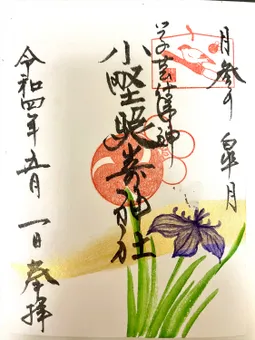 月参り 皐月
学芸の神
小野照崎神社
令和四年五月一日奉拝